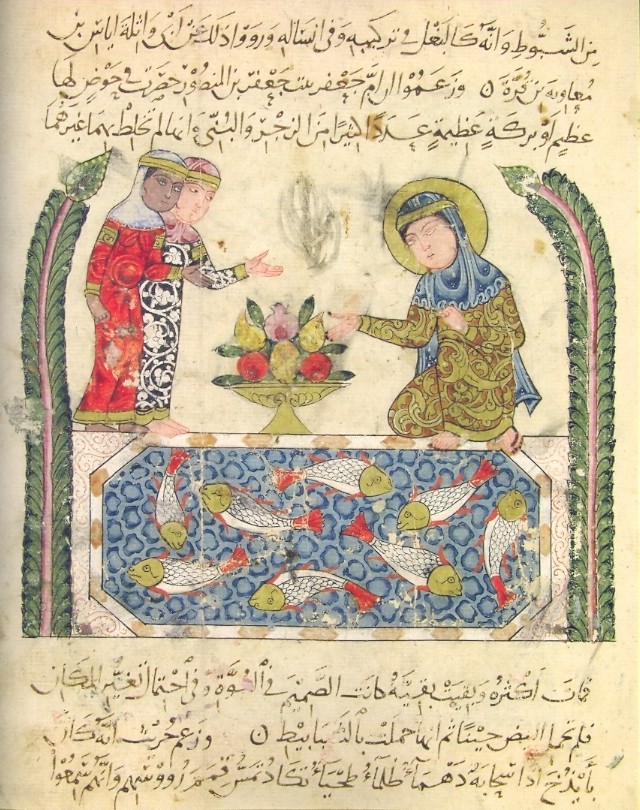 من الشبوط وانه كالبغل في تركيبه وفي انساله ورووا ذلك عن ابن واثلة اياس بن
معاوية بن قرة ٥ وزعموا ان ام جعفر بنت جعفر بن المنصور حصرت في حوض لها
عظيم او بركة عظيمة عددا كثيرا من الزجر والبني وانها لم تخلط بهما غيرهما
فمات اكثره وبقيت بقية كانت الصميم في القوة وفي احتمال تغير المكان
فلم تحمل البيض حينا ثم انها حملت بالشبابيط ٥ وزعم حريث انه كان
بأيذخ اذا سحابة دهماء طلماء طخياء تكاد تمس قمم رووسهم وانهم سمعوا